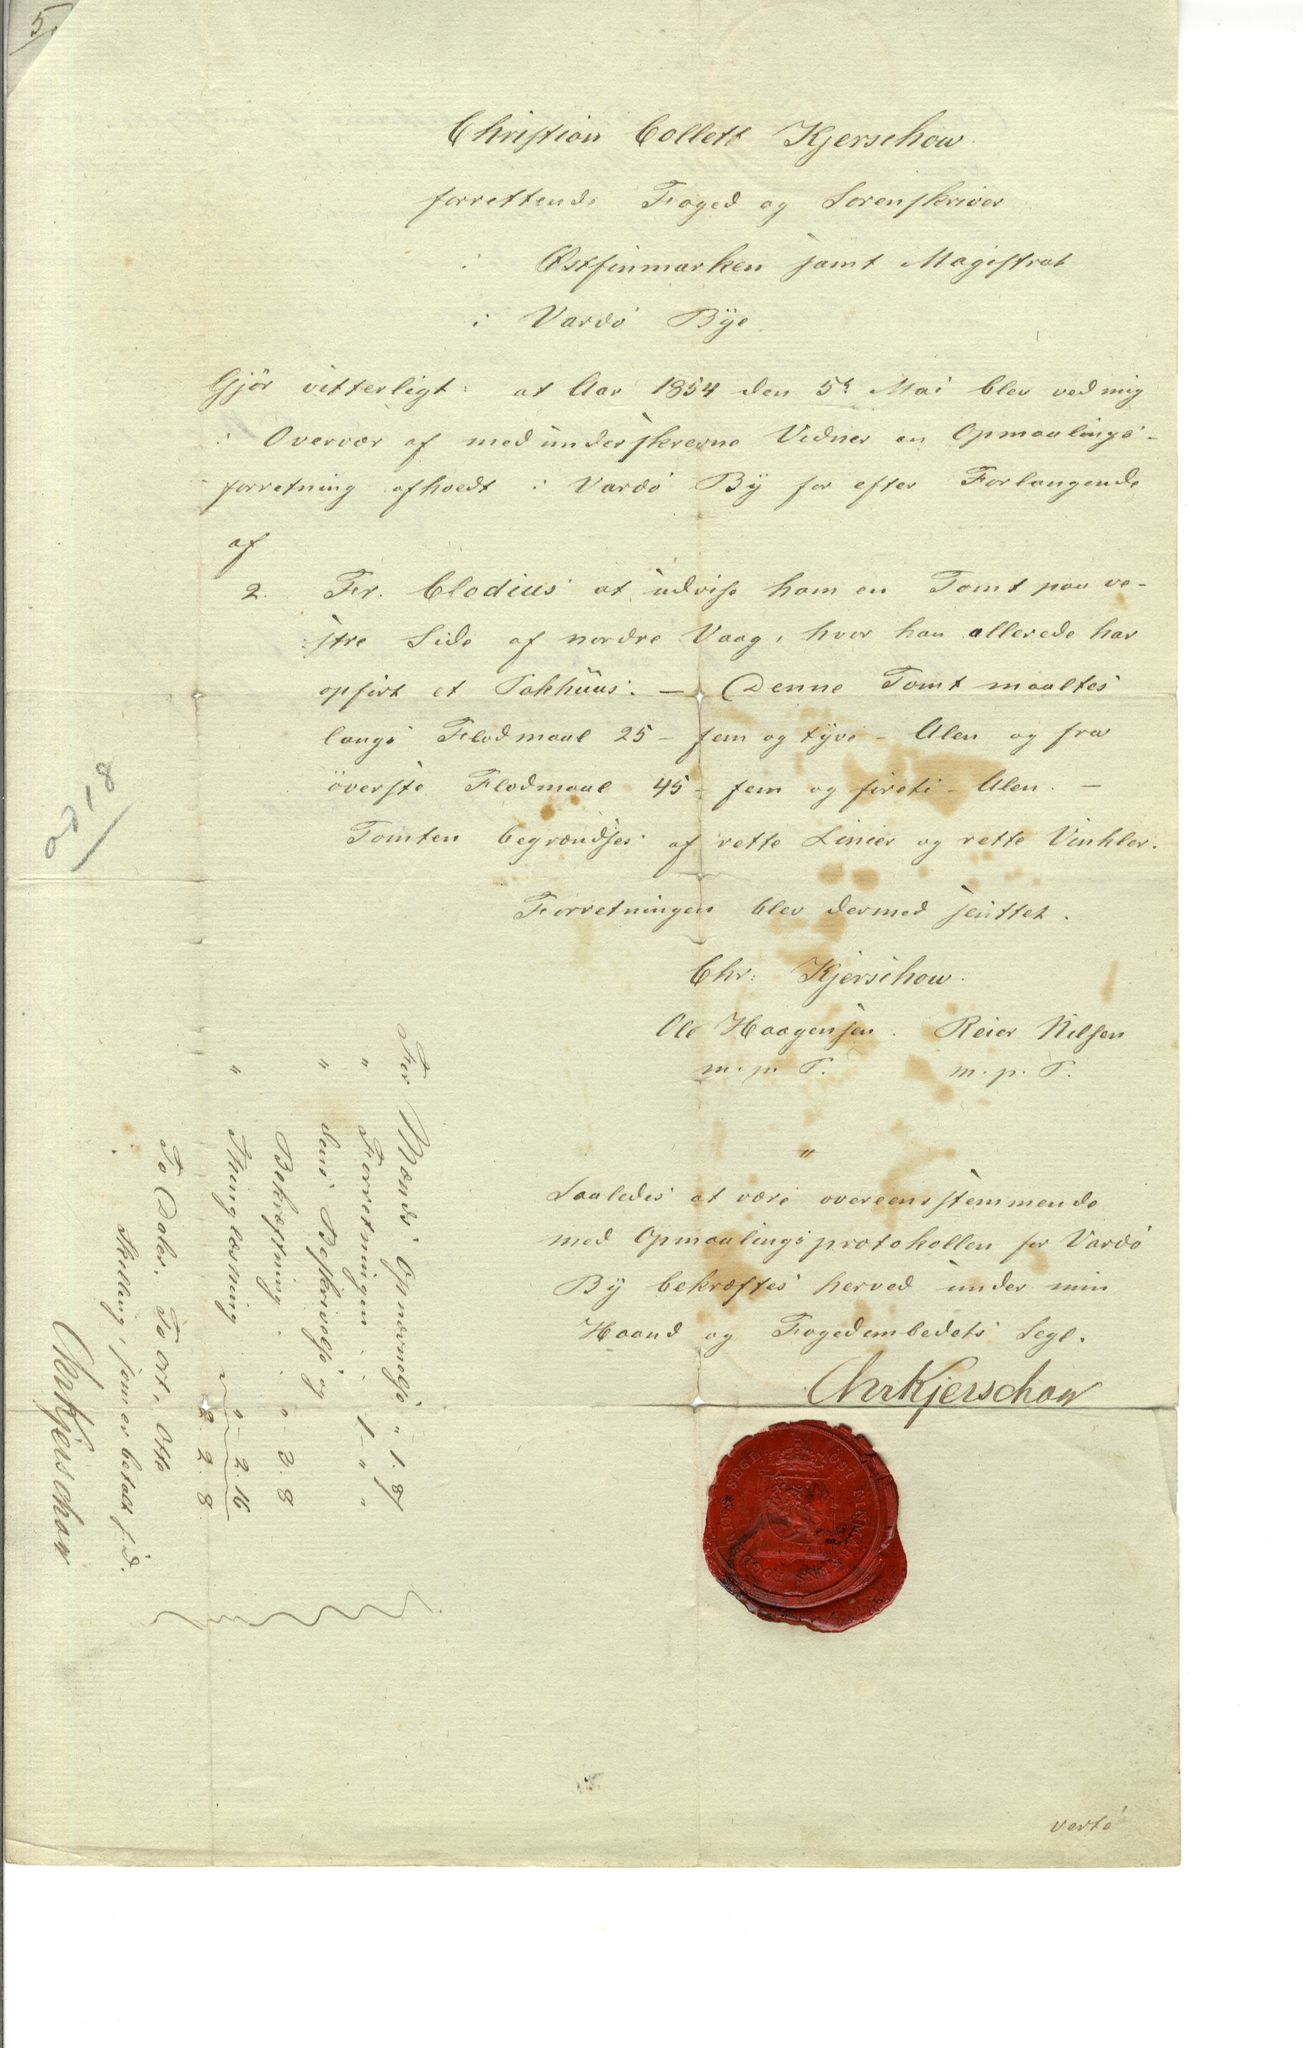 5.
Christian Collett Kjerschow
forrettende Foged og Sorenskriver
i Østfinmarken samt Magistrat
i Vardö Bÿe
Gjör vitterligt: at Aar 1854 den 5t Mai blev ved mig
i Overvær af medunderskrevne Vidner en Opmaalings-
forretning afholdt i Vardö Bÿ for efter Forlangende
af
2. Fr. Clodius at udvise ham en Tomt paa ve-
stre Side af nordre Vaag, hvor han allerede har
opfört et Pakhuus. — Denne Tomt maaltes
langs Flodmaal 25 - fem og tÿve - Alen og fra
överste Flodmaal 45 - fem og fireti - Alen. —
Tomten begrændses af rette Linier og rette Vinkler.
Forretningen blev dermed sluttet.
Chr: Kjerschow.
Ole Haagensen. Reier Nilsen
m. p. P. m. p. P.
"
Saaledes at være overeensstemmende
med Opmaalingsprotokollen for Vardö
Bÿ bekræftes herved under min
Haand og Fogedembedets Segl.
Chr Kjerschow
ØST FINMARKENS FOGDERIES SEGL
For Mænds Opnævnelse " 1. 8
" Forretningen . . 1 - " "
" dens Beskrivelse og
Bekræftning . . " 3. 8
" Thinglæsning " 2. 16
2. 2. 8
To Daler, To ort, Otte
Skilling, som er betalt s. D.
Chr Kjerschow
verte